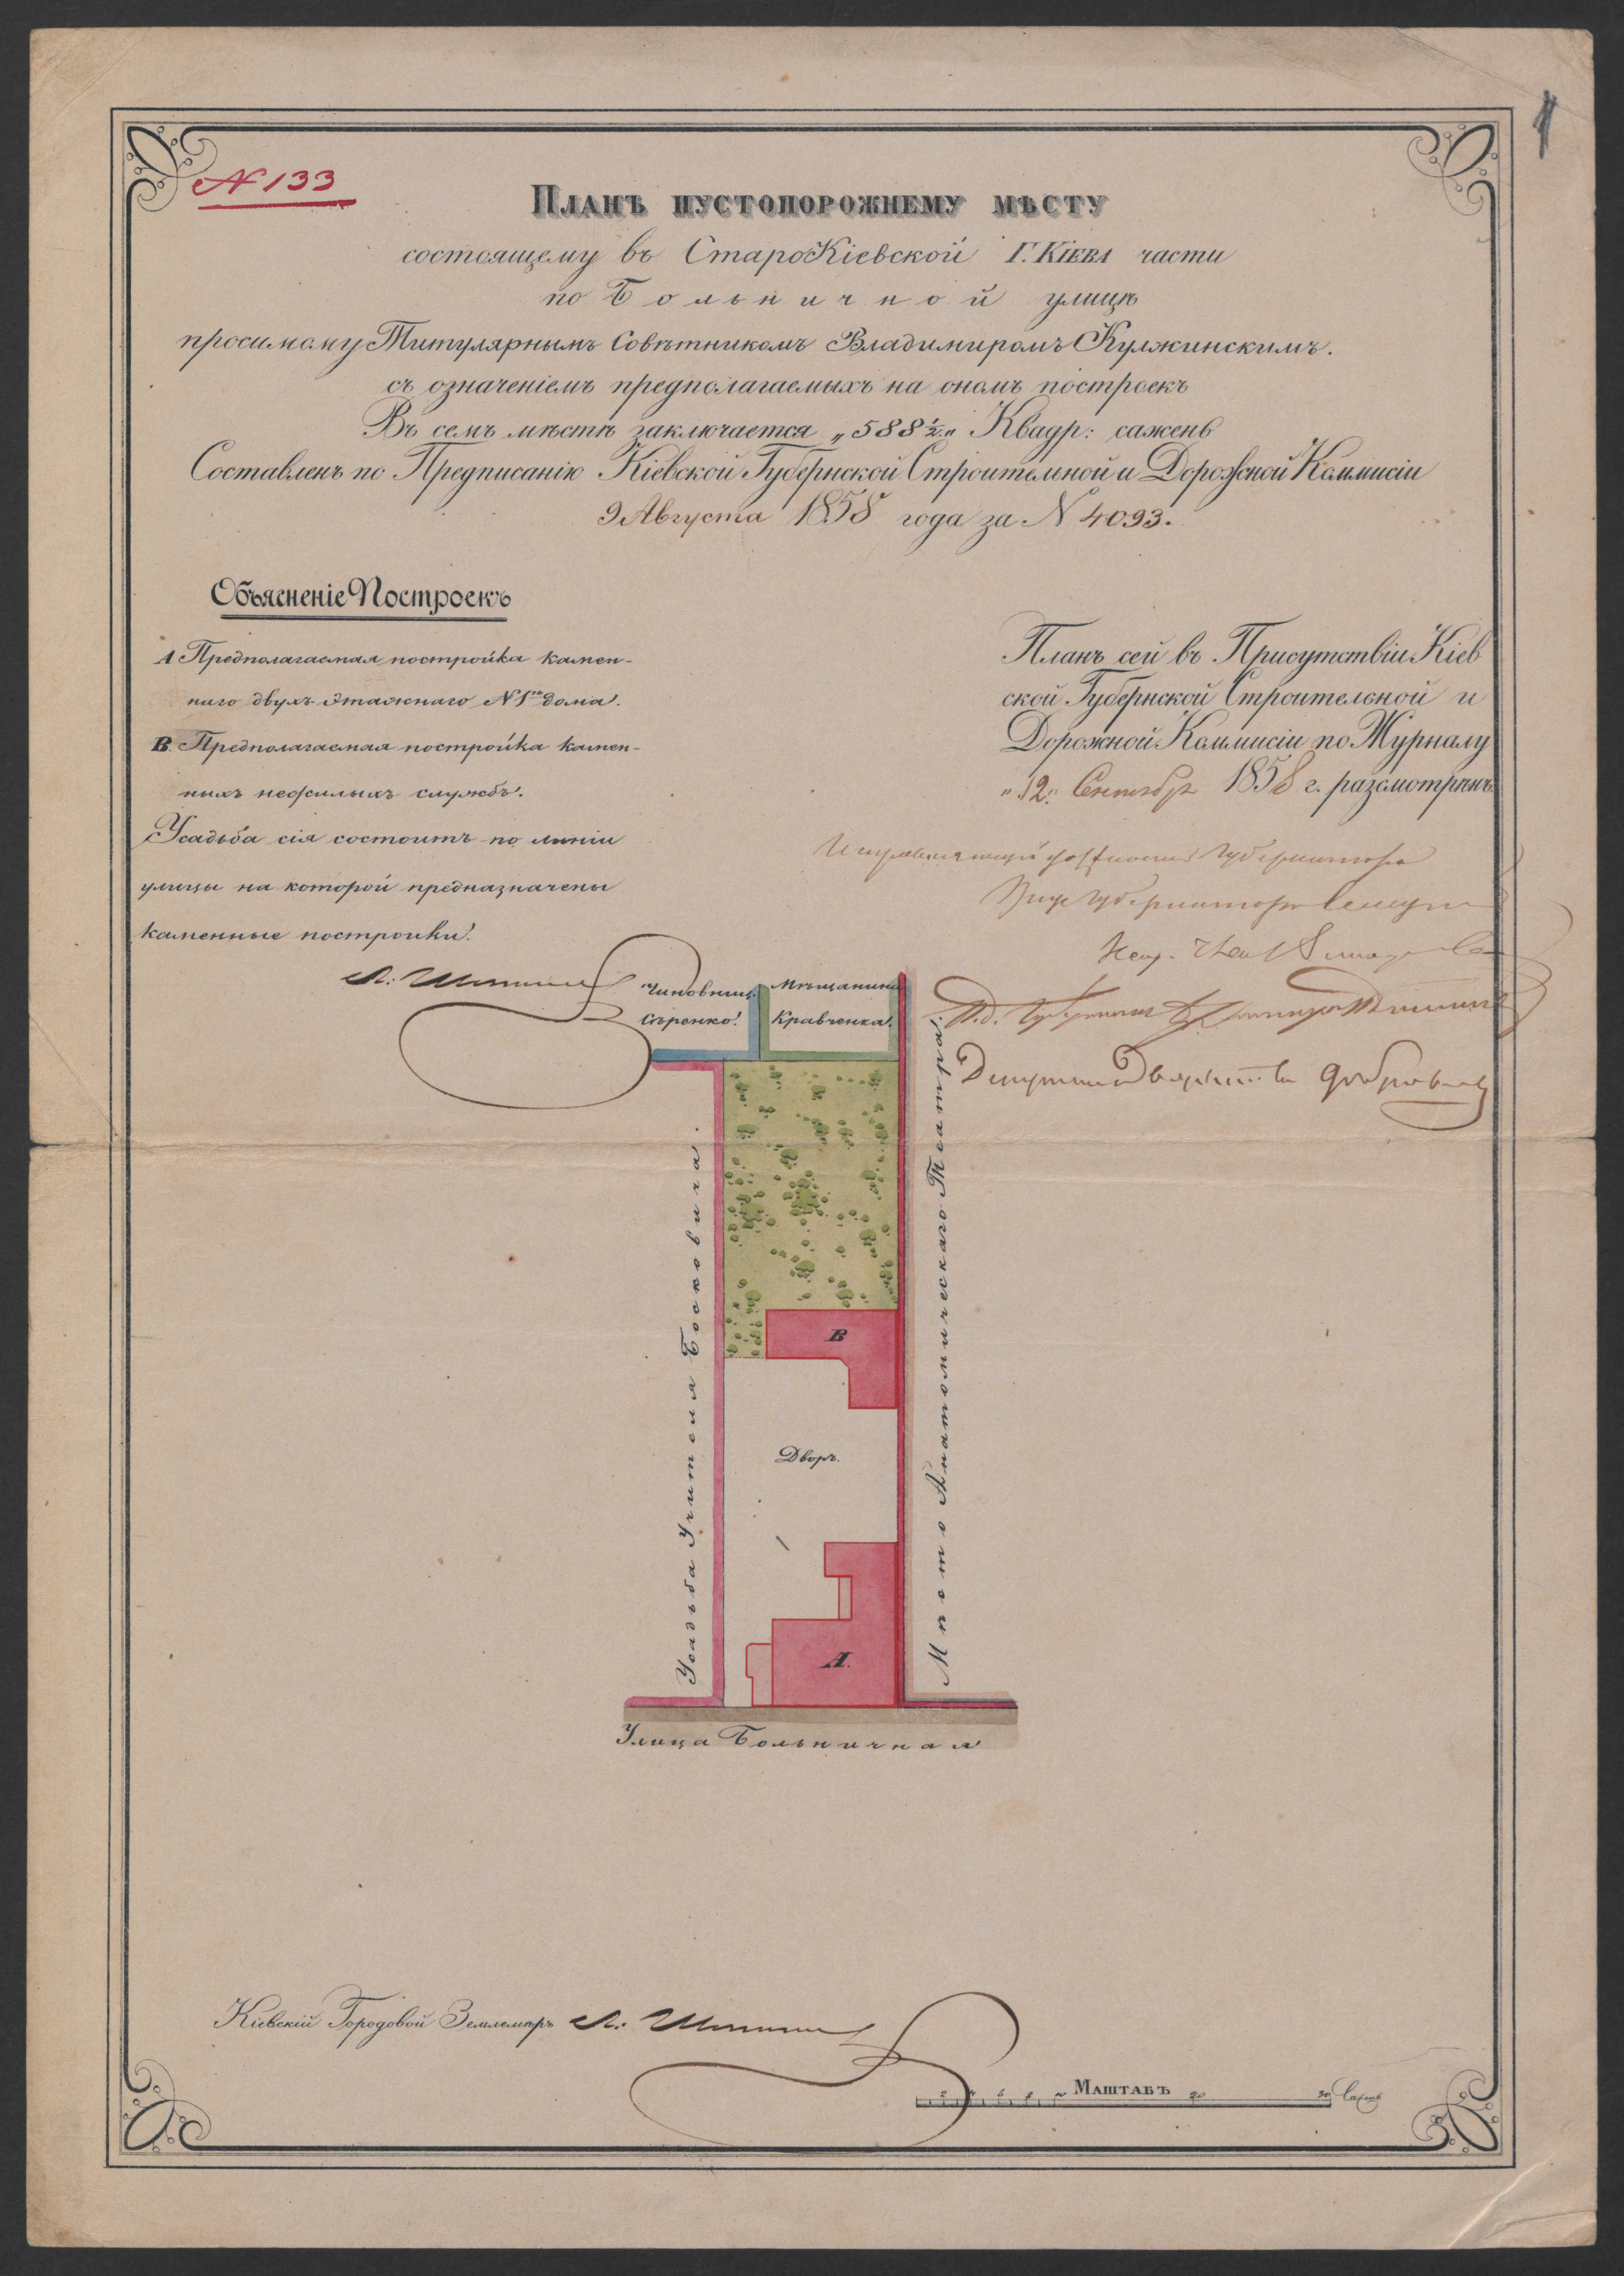 N 133
Планъ пустопорожнему мѣсту
состоящему въ СтароКіевской Г. Кіева части
по Больничной улицѣ
просимому Титулярнымъ Совѣтникомъ Владимиромъ Кулжинскимъ.
съ означеніемъ предполагаемыхъ на ономъ построекъ
Въ семъ мѣстѣ заключается „588 ½„ Квадр: сажень
Составленъ по Предписанію Кіевской Губернской Строительной и Дорожной Коммисіи
9 Августа 1858 года за N 4093.
Объясненіе Построекъ
А Предполагаемая постройка камен-
наго двухъ-этажнаго N 1го дома.
В. Предполагаемая постройка камен-
ныхъ нежилыхъ службъ.
Усадьба сія состоитъ по линіи
улицы на которой предназначены
каменные постройки.
Планъ сей въ Присутствіи Кіев
ской Губернской Строительной и
Дорожной Коммисіи по Журналу
„12„ Сентября 1858 г. разсмотрѣнъ
Исправляющій должность Губернатора
Вице Губернаторъ
Чиновниц.
Сѣренко.
Мѣщанина
Кравченка.
Усадьба Учителя Босковича.
Мѣсто Анатомическаго Театра.
В
Дворъ.
А.
Улица Больничная
Кіевскій Городовой Землемѣръ
2 4 6 8 Маштабъ 20 30 Саженъ